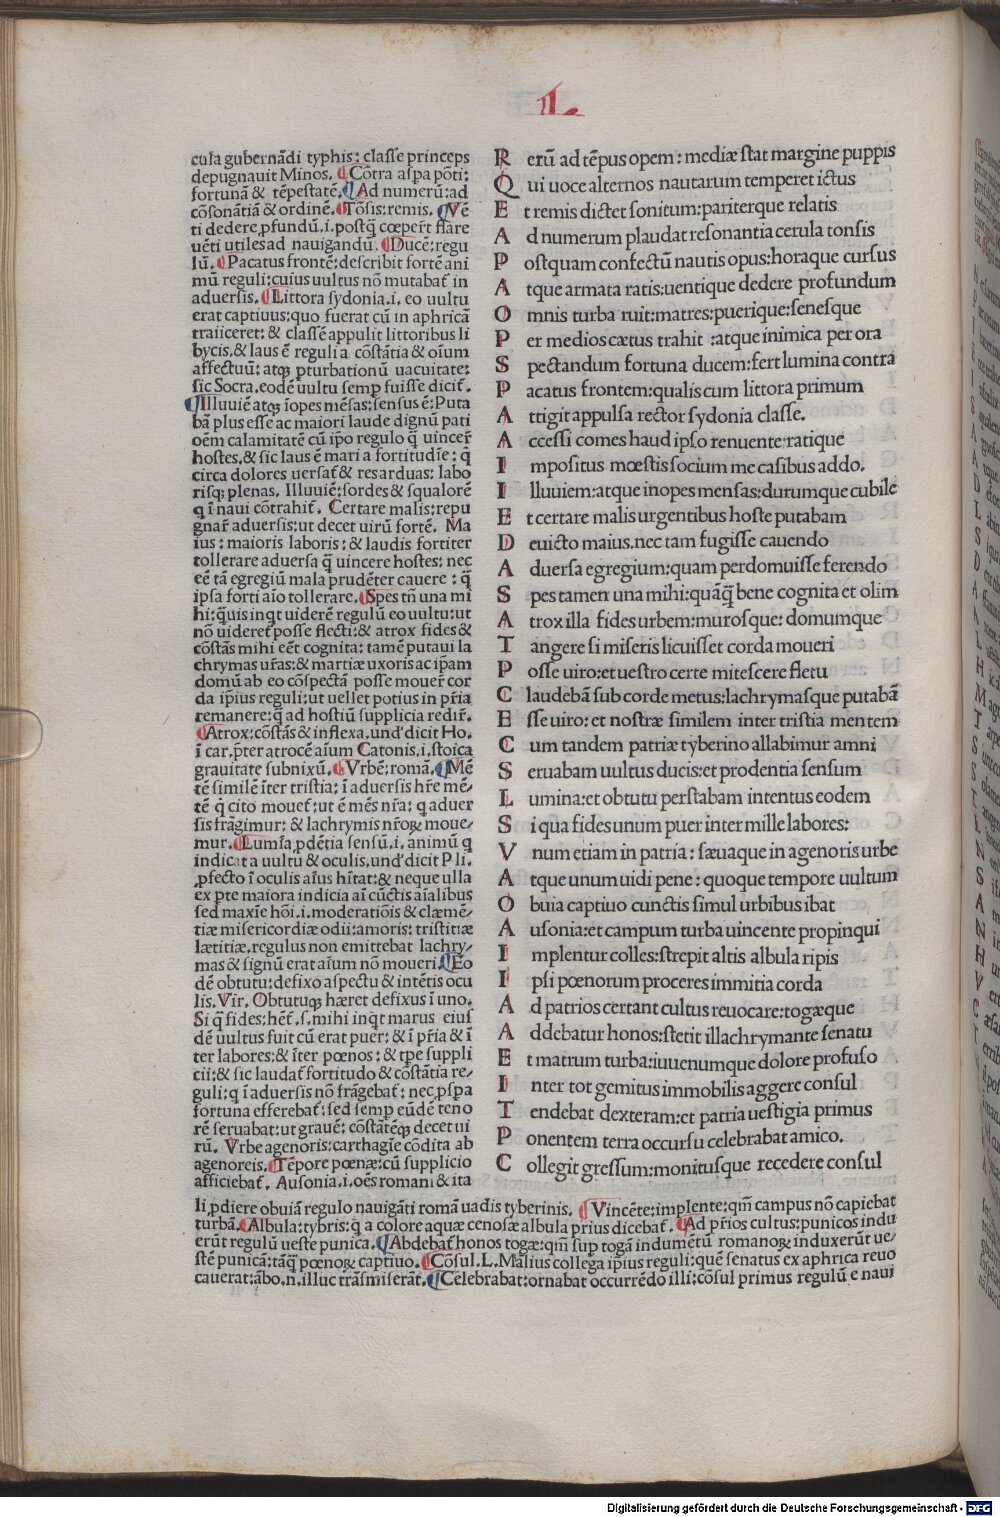 L
cula gubernādi typhis: classe princeps
depugnauit Minos. Cōtra aspa pōti:
fortunā & tēpestatē. Ad numerū: ad
cōsonātiā & ordinē. Tōsis: remis. Vē
ti dedere ꝓfundū .i. postꝗ̄ cœper̄t flare
uēti utiles ad nauigandū. Ducē: regu
lū. Pacatus frontē: describit fortē ani
mū reguli: cuius uultus nō mutabat̄ in
aduersis. Littora sydonia .i. eo uultu
erat captiuus: quo fuerat cū in aphrica
traiiceret: & classē appulit littoribus li
bycis. & laus ē reguli a cōstātia & oīum
affectuū: atqꝫ pturbationū uacuitate:
sic Socra. eodē uultu semp fuisse dicit̄.
Illuuiē atqꝫ īopes mēsas: sensus ē: Puta
bā plus esse ac maiori laude dignū pati
oēm calamitatē cū ip̄o regulo ꝗ̄ uincer̄
hostes. & sic laus ē mari a fortitudīe: ꝗ̄
circa dolores uersat̄ & res arduas: labo
risqꝫ plenas. Illuuiē: sordes & squalorē
ꝗ ī naui cōtrahit̄. Certare malis: repu
gnar̄ aduersis: ut decet uirū fortē. Ma
ius: maioris laboris: & laudis fortiter
tollerare aduersa ꝗ̄ uincere hostes: nec
eē tā egregiū mala prudēter cauere: ꝗ̄
ipsa forti aīo tollerare. Spes tn̄ una mi
hi: quis inqt uiderē regulū eo uultu: ut
nō uideret̄ posse flecti: & atrox fides &
cōstās mihi eēt cognita: tamē putaui la
chrymas ur̄as: & martiæ uxoris ac ip̄am
domū ab eo cōspectā posse mouer̄ cor
da ip̄ius reguli: ut uellet potius in pr̄ia
remanere: ꝗ̄ ad hostiū supplicia redir̄.
Atrox: cōstās & inflexa. und' dicit Ho.
ī car. p̄ter atrocē aīum Catonis .i. stoica
grauitate subnixū. Vrbē: romā. Mē
tē similē īter tristia: ī aduersis hr̄e mē-
tē ꝗ cito mouet̄: ut ē mēs nr̄a: ꝗ aduer
sis frāgimur: & lachrymis nr̄oꝝ moue-
mur. Lumīa ꝓdētia sensū .i. animū ꝗ
indicāt a uultu & oculis. und' dicit Pli.
ꝓfecto ī oculis aīus hītat: & neque ulla
ex pte maiora indicia aī cūctis aīalibus
sed maxīe hōi .i. moderatiōis & clæmē-
tiæ misericordiæ odii: amoris: tristitiæ
lætitiæ. regulus non emittebat lachry-
mas & signū erat aīum nō moueri. Eo
dē obtutu: defixo aspectu & intētis ocu
lis. Vir. Obtutuqꝫ hæret defixus ī uno.
Si ꝗ̄ fides: hēt̄ .s. mihi inqt marus eius
dē uultus fuit cū erat puer: & ī pr̄ia & ī
ter labores: & īter pœnos: & tpe suppli
cii: & sic laudat̄ fortitudo & cōstātia re-
guli: ꝗ ī aduersis nō frāgebat̄: nec ꝓspa
fortuna efferebat̄: sed semp eūdē teno
rē seruabat: ut grauē: cōstātēqꝫ decet ui
rū. Vrbe agenoris: carthagīe cōdita ab
agenoreis. Tēpore pœnæ: cū supplicio
afficiebat̄. Ausonia .i. oēs romani & ita
R erū ad tēpus opem: mediæ stat margine puppis
Q ui uoce alternos nautarum temperet ictus
E t remis dictet sonitum: pariterque relatis
A d numerum plaudat resonantia cerula tonsis
P ostquam confectū nautis opus: horaque cursus
A tque armata ratis: uentique dedere profundum
O mnis turba ruit: matres: puerique: senesque
P er medios cætus trahit :atque inimica per ora
S pectandum fortuna ducem: fert lumina contra
P acatus frontem: qualis cum littora primum
A ttigit appulsa rector sydonia classe.
A ccessi comes haud ipso renuente: ratique
I mpositus mœstis socium me casibus addo.
I lluuiem: atque inopes mensas: durumque cubile
E t certare malis urgentibus hoste putabam
D euicto maius. nec tam fugisse cauendo
A duersa egregium: quam perdomuisse ferendo
S pes tamen una mihi: quāꝗ̄ bene cognita et olim
A trox illa fides urbem: murosque: domumque
T angere si miseris licuisset corda moueri
P osse uiro: et uestro certe mitescere fletu
C laudebā sub corde metus: lachrymasque putabā
E sse uiro: et nostræ similem inter tristia mentem
C um tandem patriæ tyberino allabimur amni
S eruabam uultus ducis: et prodentia sensum
L umina: et obtutu perstabam intentus eodem
S i qua fides unum puer inter mille labores:
V num etiam in patria: sæuaque in agenoris urbe
A tque unum uidi pene: quoque tempore uultum
O buia captiuo cunctis simul urbibus ibat
A usonia: et campum turba uincente propinqui
I mplentur colles: strepit altis albula ripis
I psi pœnorum proceres immitia corda
A d patrios certant cultus reuocare: togæque
A ddebatur honos: stetit illachrymante senatu
E t matrum turba: iuuenumque dolore profuso
I nter tot gemitus immobilis aggere consul
T endebat dexteram: et patria uestigia primus
P onentem terra occursu celebrabat amico.
C ollegit gressum: monitusque recedere consul
li ꝓdiere obuiā regulo nauigāti romā uadis tyberinis. Vincēte: implente: qm̄ campus nō capiebat
turbā. Albula: tybris: ꝗ a colore aquæ cenosæ albula prius dicebat̄. Ad pr̄ios cultus: punicos indu
erūt regulū ueste punica. Abdebat̄ honos togæ: qm̄ sup togā indumētū romanoꝝ induxerūt ue-
stē punicā: tāꝗ̄ pœnoꝝ captiuo. Cōsul. L. Mālius collega ip̄ius reguli: quē senatus ex aphrica reuo
cauerat: ābo .n. illuc trāsmiserāt. Celebrabat: ornabat occurrēdo illi: cōsul primus regulū e naui
Digitalisierung gefördert durch die Deutsche Forschungsgemeinschaft - DFG